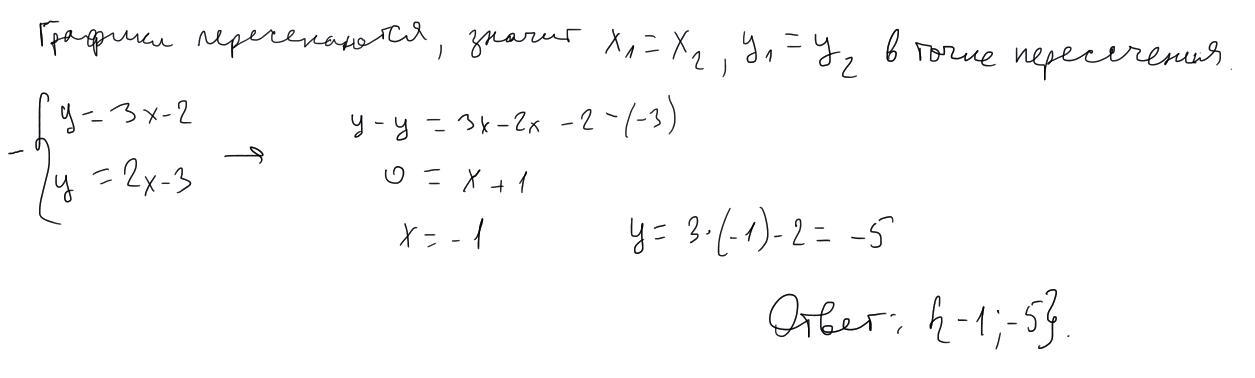 Графики пересекаются, значит x₁ = x₂, y₁ = y₂ в точке пересечения.
- { y = 3x - 2 → y - y = 3x - 2x - 2 - (-3)
y = 2x - 3 0 = x + 1
x = -1 y = 3·(-1) - 2 = -5
Ответ: {-1; -5}.